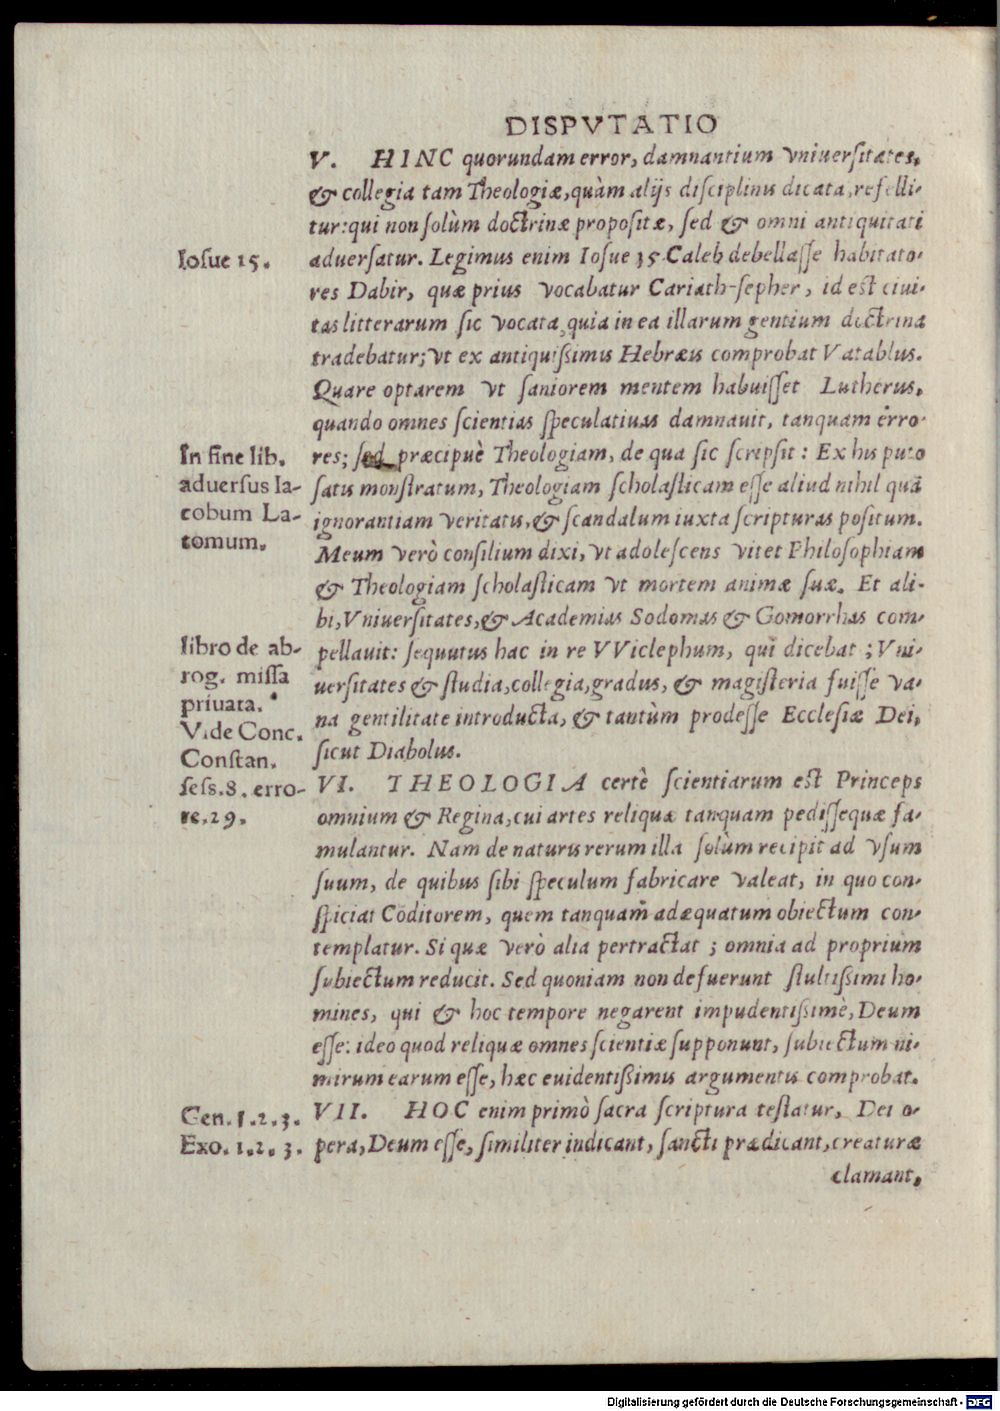 DISPVTATIO
V. HINC quorundam error, damnantium vniuersitates,
& collegia tam Theologiæ, quàm alijs disciplinis dicata, refelli-
tur: qui non solùm doctrinæ propositæ, sed & omni antiquitati
Iosue 15.
aduersatur. Legimus enim Iosue 35 Caleb debellasse habitato-
res Dabir, quæ prius vocabatur Cariath-sepher, id est ciui-
tas litterarum sic vocata, quia in ea illarum gentium doctrina
tradebatur; vt ex antiquißimis Hebræis comprobat Vatablus.
Quare optarem vt saniorem mentem habuisset Lutherus,
quando omnes scientias speculatiuas damnauit, tanquam erro-
In fine lib.
aduersus Ia-
cobum La-
tomum.
res; sed præcipuè Theologiam, de qua sic scripsit: Ex his puto
satis monstratum, Theologiam scholasticam esse aliud nihil quã
ignorantiam veritatis, & scandalum iuxta scripturas positum.
Meum verò consilium dixi, vt adolescens vitet Philosophiam
& Theologiam scholasticam vt mortem animæ suæ. Et ali-
bi, Vniuersitates, & Academias Sodomas & Gomorrhas com-
libro de ab-
rog. missa
priuata.
Vide Conc.
Constan.
sess. 8. erro-
re. 29.
pellauit: sequutus hac in re VViclephum, qui dicebat; Vni-
uersitates & studia, collegia, gradus, & magisteria fuisse va-
na gentilitate introducta, & tantùm prodesse Ecclesiæ Dei,
sicut Diabolus.
VI. THEOLOGIA certè scientiarum est Princeps
omnium & Regina, cui artes reliquæ tanquam pedissequæ fa-
mulantur. Nam de naturis rerum illa solùm recipit ad vsum
suum, de quibus sibi speculum fabricare valeat, in quo con-
spiciat Cõditorem, quem tanquam adæquatum obiectum con-
templatur. Si quæ verò alia pertractat; omnia ad proprium
subiectum reducit. Sed quoniam non defuerunt stultißimi ho-
mines, qui & hoc tempore negarent impudentißimè, Deum
esse: ideo quod reliquæ omnes scientiæ supponunt, subiectum ni-
mirum earum esse, hæc euidentißimis argumentis comprobat.
Gen. 1. 2. 3.
Exo. 1. 2. 3.
VII. HOC enim primò sacra scriptura testatur, Dei o-
pera, Deum esse, similiter indicant, sancti prædicant, creaturæ
clamant,
Digitalisierung gefördert durch die Deutsche Forschungsgemeinschaft - DFG